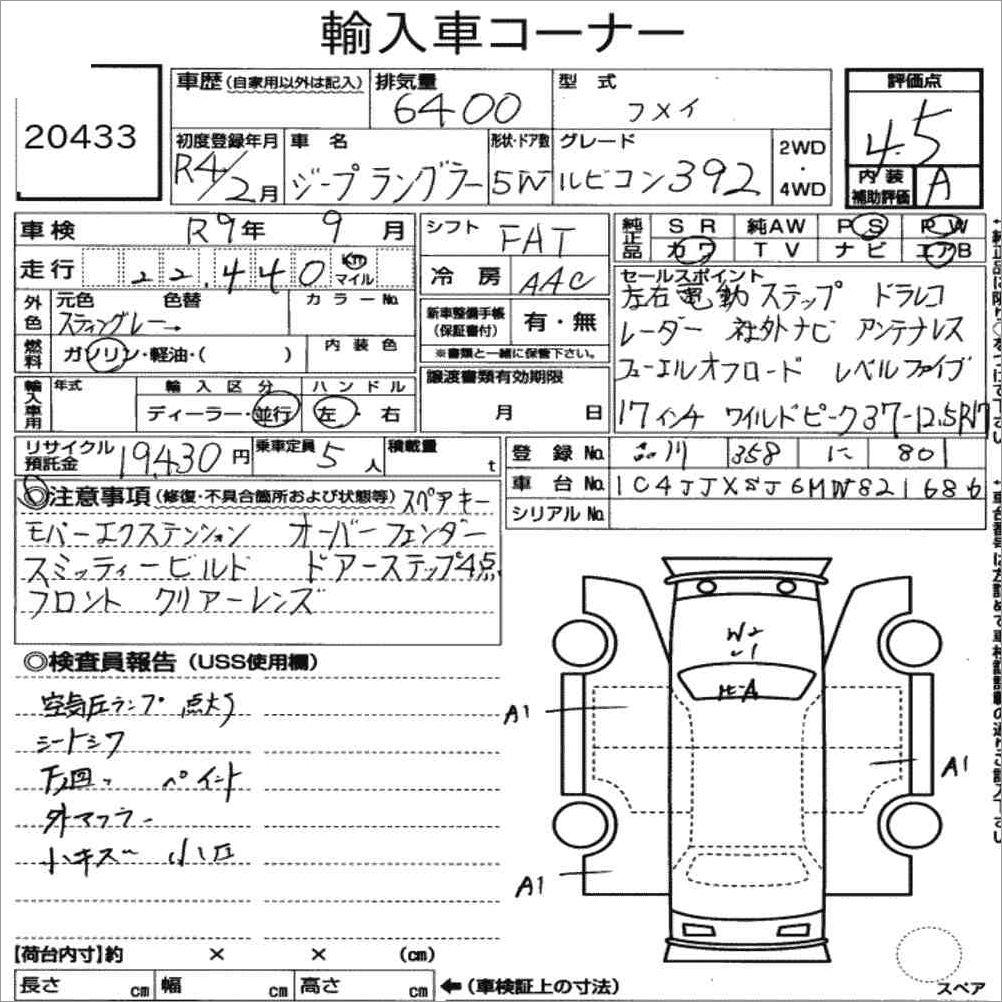 輸入車コーナー
20433
車歴(自家用以外は記入)
排気量
6400
型 式
フメイ
評価点
4.5
初度登録年月
R4/2月
車 名
ジープ ラングラー
形状・ドア数
5W
グレード
ルビコン392
2WD
・
4WD
内 装
補助評価
A
車 検
R9年 9 月
走 行
22,440
Km
マイル
外色
元色
色替
カラーNo.
スティングレー→
燃料
ガソリン・軽油・( )
内 装 色
輸入車用
年式
輸 入 区 分
ディーラー・並行
ハ ン ド ル
左・右
シフト
FAT
冷 房
AAC
新車整備手帳
(保証書付)
有・無
※書類と一緒に保管下さい。
譲渡書類有効期限
月 日
純正品
S R
純AW
P S
P W
カ ワ
T V
ナ ビ
エアB
セールスポイント
左右電動 ステップ ドラレコ
レーダー 社外ナビ アンテナレス
フューエルオフロード レベルファイブ
17インチ ワイルドピーク 37-12.5R17
リサイクル
預託金
19430円
乗車定員
5人
積載量
t
登 録 No.
品川 358 に 80
車 台 No.
1C4JJXSJ6MW821686
シリアル No.
◎注意事項(修復・不具合箇所および状態等)スペアキー
モパーエクステンション オーバーフェンダー
スミッティービルド ドアーステップ4点
フロント クリアーレンズ
◎検査員報告(USS使用欄)
空気圧ランプ 点灯
シートシワ
ペイント
外マフラー
小キズ 小凹
W2
U1
A
A1
A1
A1
【荷台内寸】約 × × (cm)
長さ cm
幅 cm
高さ cm
←(車検証上の寸法)
スペア